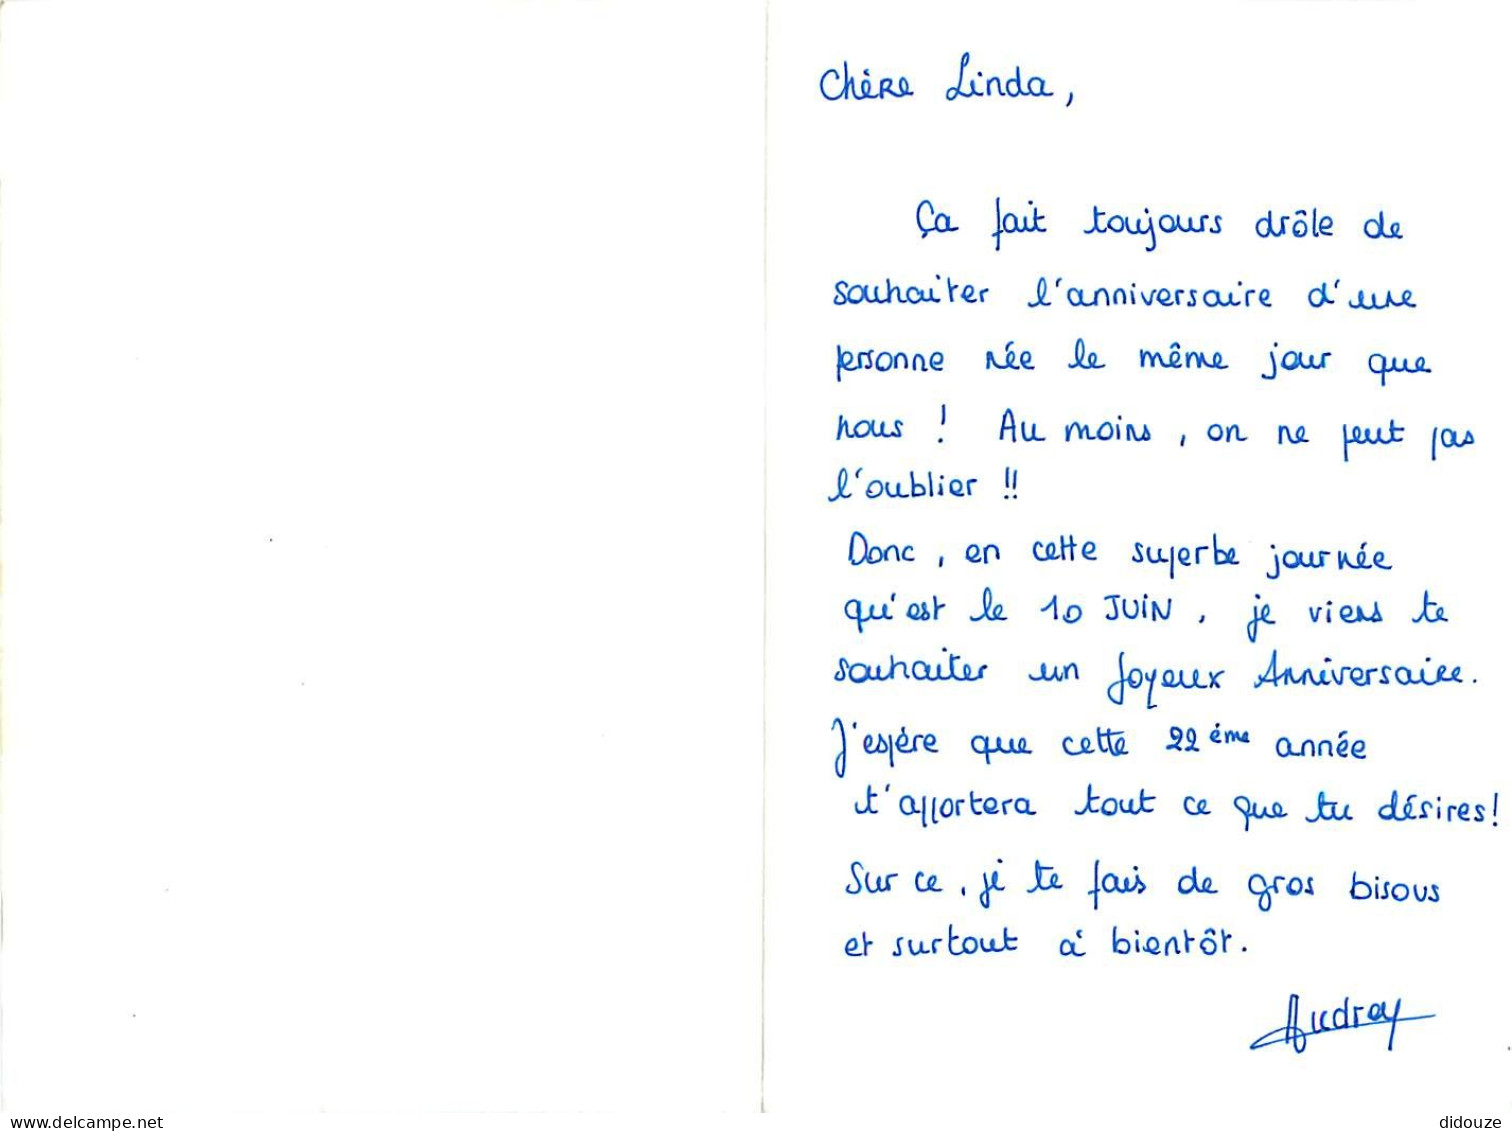 Chère Linda,
Ça fait toujours drôle de
souhaiter l'anniversaire d'une
personne née le même jour que
nous ! Au moins, on ne peut pas
l'oublier !!
Donc, en cette superbe journée
qu'est le 10 JUIN, je viens te
souhaiter un Joyeux Anniversaire.
J'espère que cette 22ème année
t'apportera tout ce que tu désires!
Sur ce, je te fais de gros bisous
et surtout à bientôt.
Audrey
www.delcampe.net
didouze